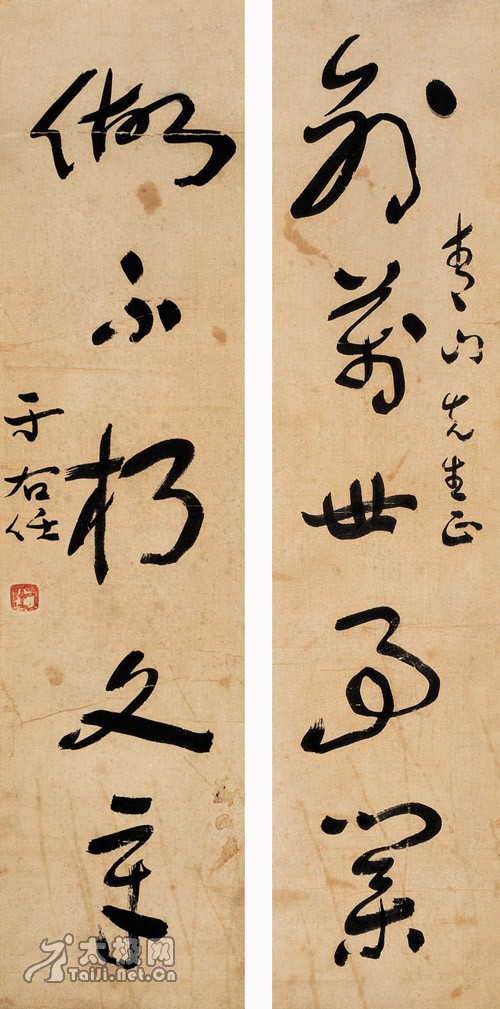 創萬世事業
青門先生正
做不朽文章
于右任
太极网
TaiJi.net.cn